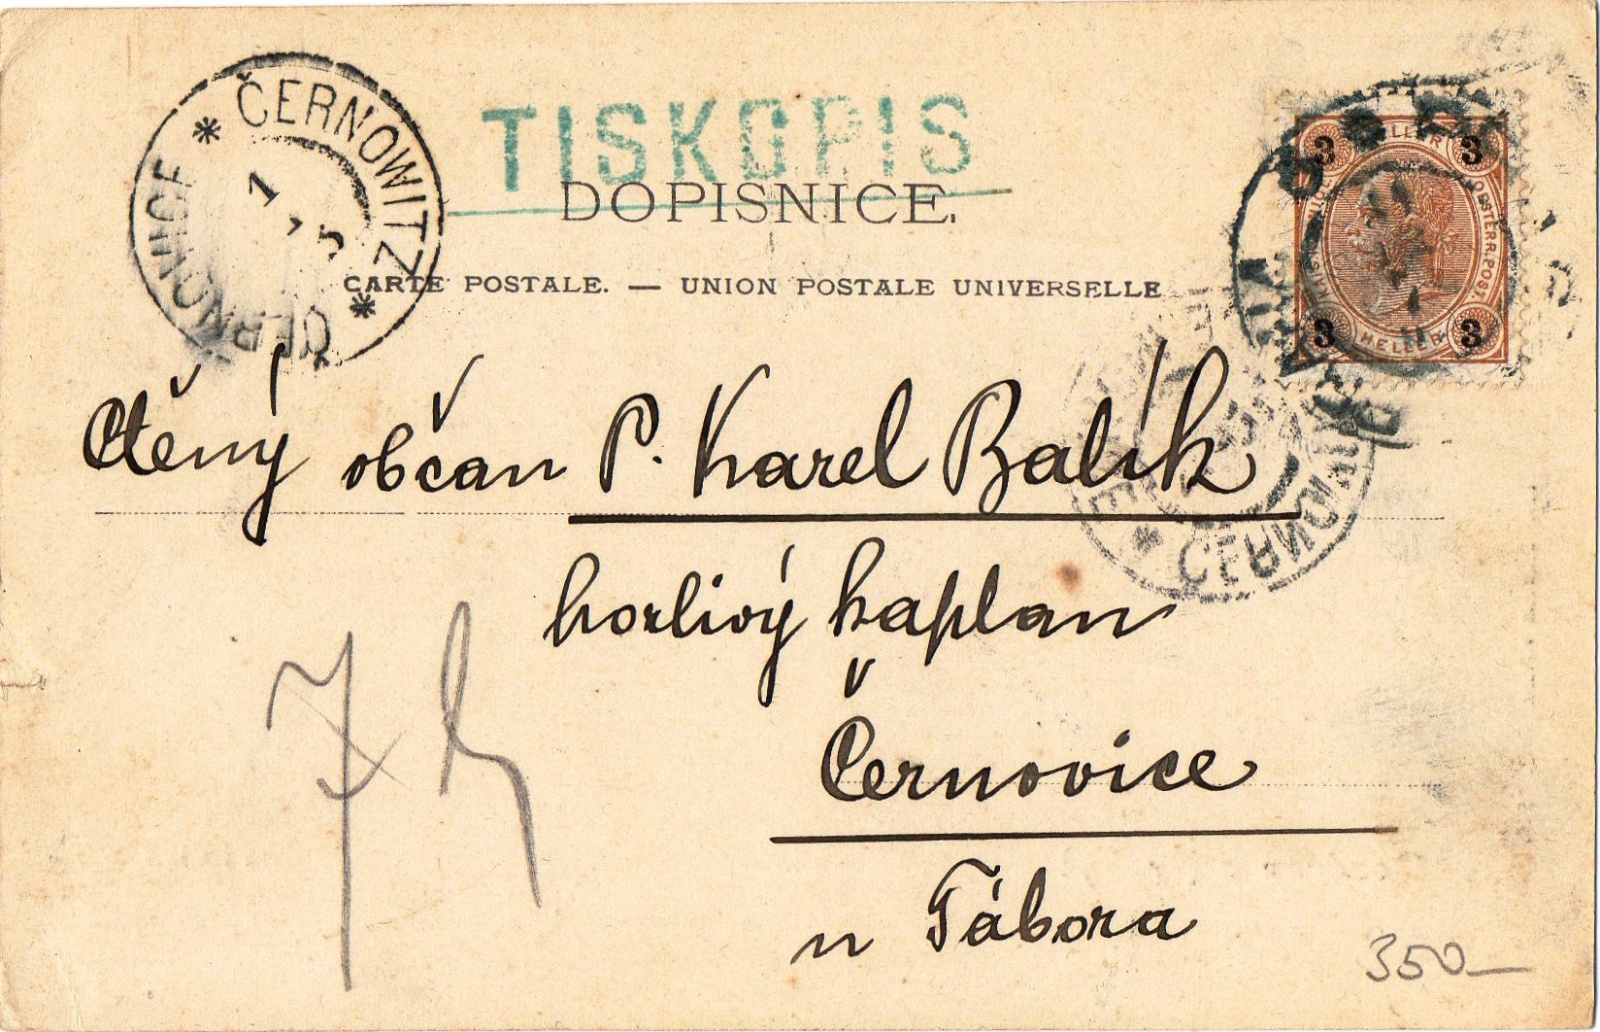 ČERNOWITZ
ČERNOVICE
1 5
TISKOPIS
DOPISNICE.
CARTE POSTALE. — UNION POSTALE UNIVERSELLE
3 HELLER 3
KAIS. OESTERR. POST.
3 HELLER 3
Ctěný občan P. Karel Balík
horlivý kaplan
v
Černovice
u Tábora
7 h
350—
ČERNOWITZ